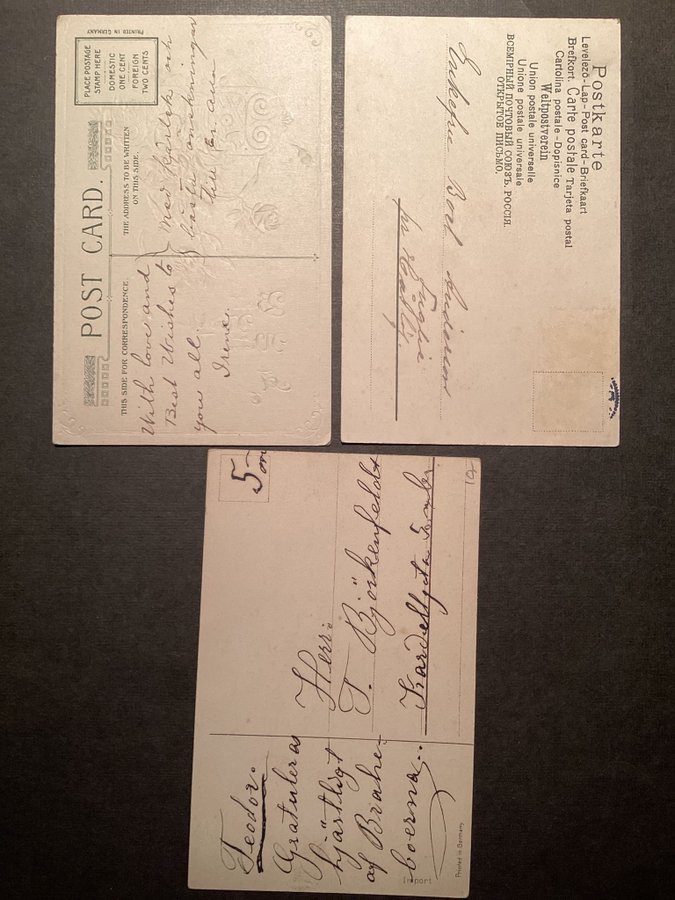 PRINTED IN GERMANY
PLACE POSTAGE
STAMP HERE
DOMESTIC
ONE CENT
FOREIGN
TWO CENTS
POST CARD.
THIS SIDE FOR CORRESPONDENCE.
THE ADDRESS TO BE WRITTEN
ON THIS SIDE.
With love and
Best Wishes to
you all.
Irene.
Med Kärlek och
bästa önskningar
till er alla
Postkarte
Levelezö-Lap-Post card-Briefkaart
Brefkort. Carte postale Tarjeta postal
Cartolina postale-Dopisnice
Weltpostverein
Union postale universelle
Unione postale universale
ВСЕМІРНЫЙ ПОЧТОВЫЙ СОЮЗЪ. РОССІЯ.
ОТКРЫТОЕ ПИСЬМО.
5
Herr.
T. Björkenfeldt
Teodor.
Gratuleras
hjärtligt
af Brahe-
boerna.
Import
Printed in Germany.